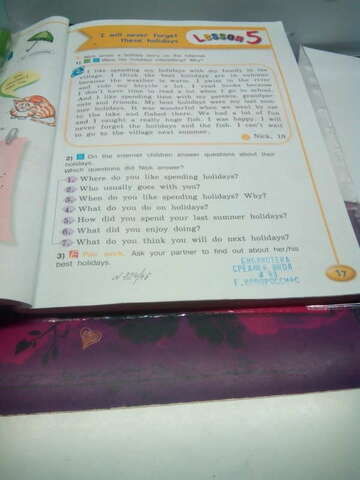 I will never forget
these holidays
Lesson 5
Nick wrote a holiday story on the Internet.
1) Were his holidays interesting? Why?
I like spending my holidays with my family in the
village. I think the best holidays are in summer
because the weather is warm. I swim in the river
and ride my bicycle a lot. I read books because
I don't have time to read a lot when I go to school.
And I like spending time with my parents, grandpar-
ents and friends. My best holidays were my last sum-
mer holidays. It was wonderful when we went by car
to the lake and fished there. We had a lot of fun
and I caught a really huge fish. I was happy. I will
never forget the holidays and the fish. I can't wait
to go to the village next summer.
Nick, 10
2) On the Internet children answer questions about their
holidays.
Which questions did Nick answer?
1. Where do you like spending holidays?
2. Who usually goes with you?
3. When do you like spending holidays? Why?
4. What do you do on holidays?
5. How did you spend your last summer holidays?
6. What did you enjoy doing?
7. What do you think you will do next holidays?
3) Pair work. Ask your partner to find out about her/his
best holidays.
БИБЛИОТЕКА
СРЕДНЯЯ ШКОЛА
Г. НОВОРОССИЙСК
17